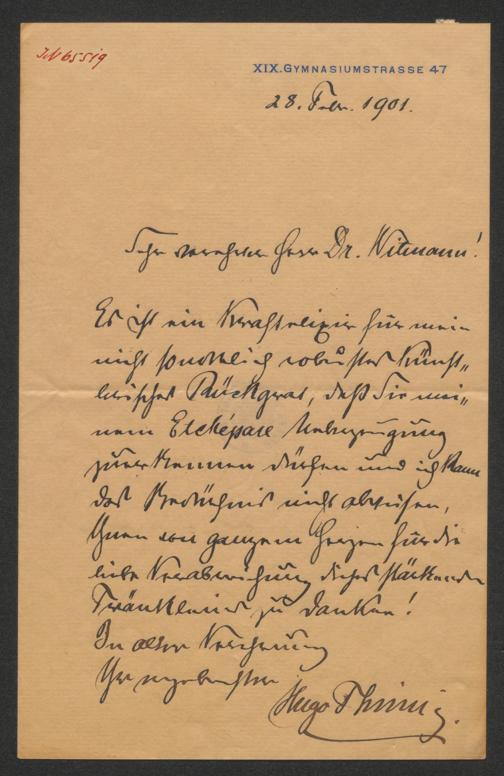 IN 65519
XIX. GYMNASIUMSTRASSE 47
28. Febr. 1901.
Sehr verehrter Herr Dr. Wittmann!
Es ist ein Kraftelixir für mein
nicht sonderlich robustes künst„
lerisches Rückgrat, daß Sie mei„
nem Etchépare Ueberzeugung
zuerkennen dürfen und ich kann
das Bedürfnis nicht abweisen,
Ihnen von ganzem Herzen für die
liebe Verabreichung dieses stärkenden
Tränkleins zu danken!
In alter Verehrung
Ihr ergebenster
Hugo Thimig.